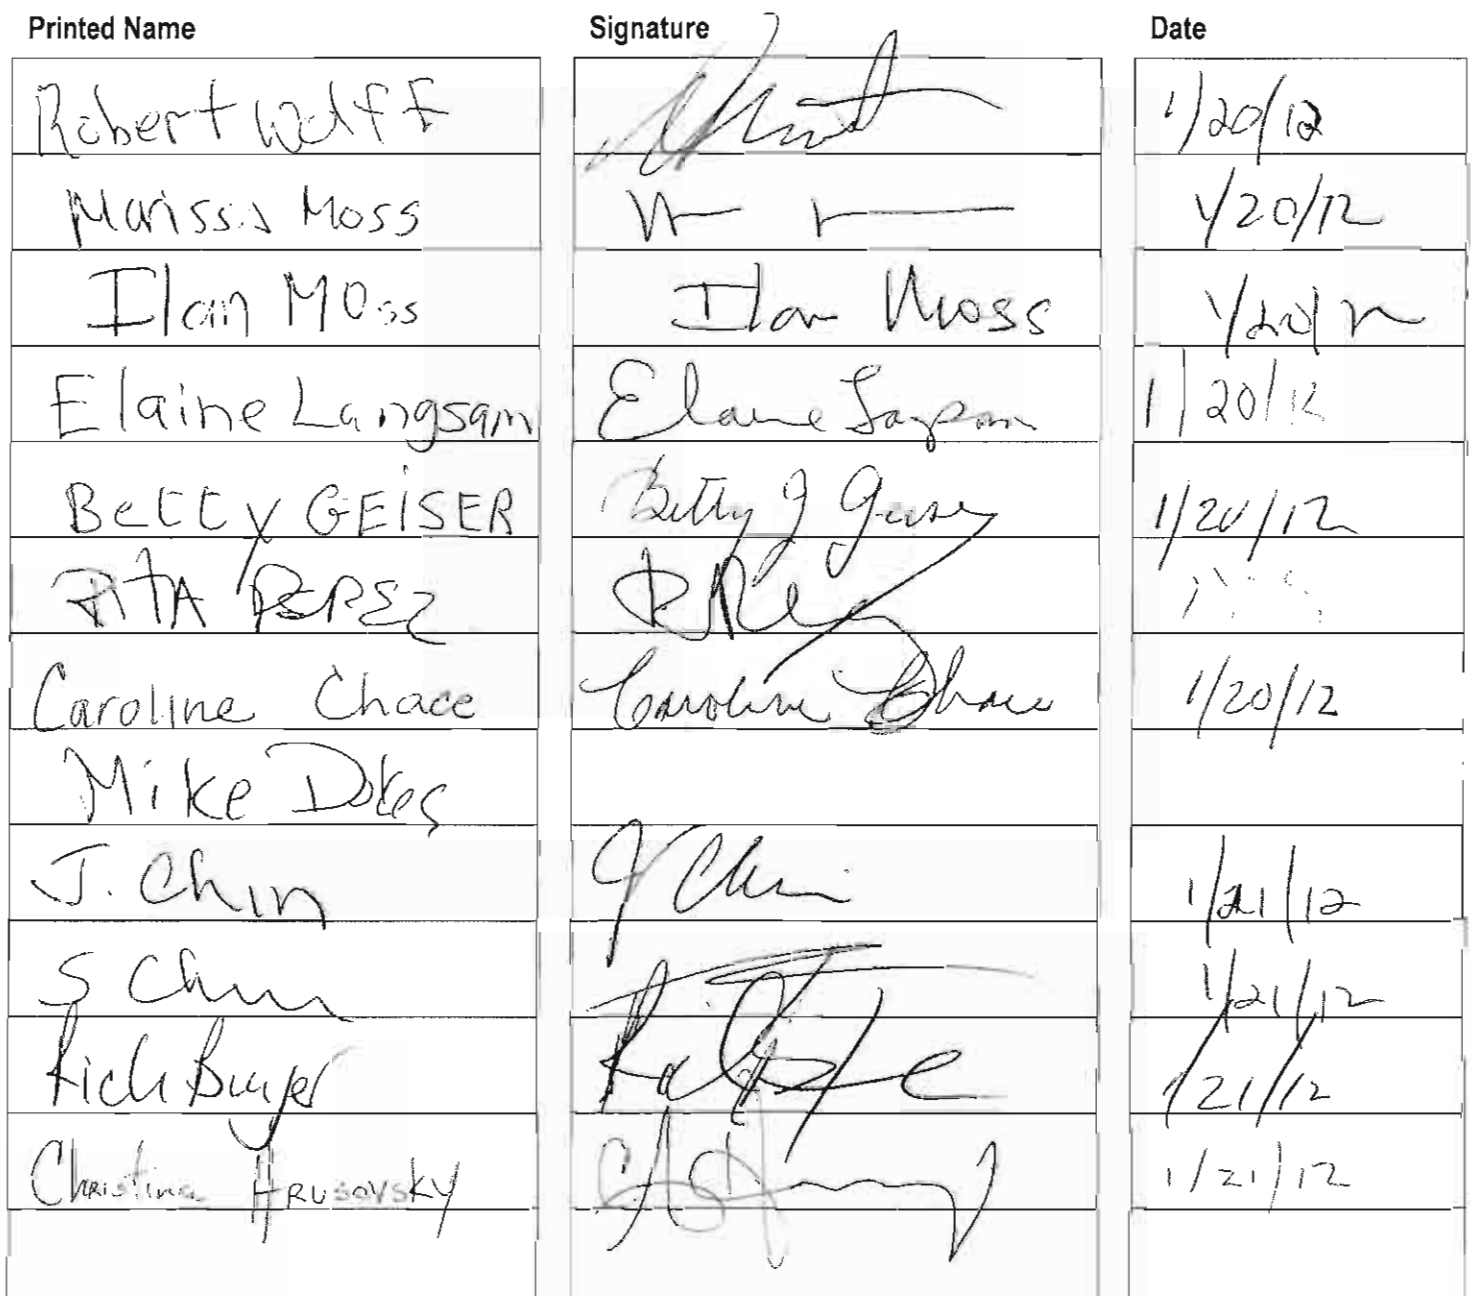 Printed Name Signature Date
Robert Wolff 1/20/12
Marissa Moss 1/20/12
Ilan Moss Ilan Moss 1/20/12
Elaine Langsam Elaine Langsam 1/20/12
Betty GEISER Betty J Geiser 1/20/12
RITA PEREZ
Caroline Chace Caroline Chace 1/20/12
Mike Dokes
J. Chin J Chin 1/21/12
S Chin 1/21/12
Rich 1/21/12
Christina HRUSOVSKY 1/21/12